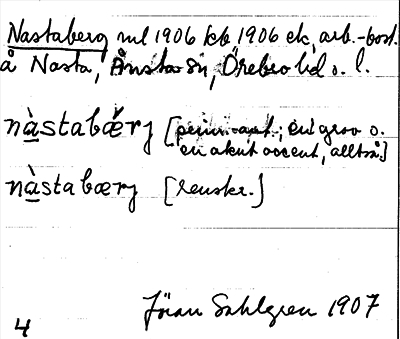 Nastaberg ml 1906 kb 1906 ek, arb.-bost.
å Nasta, Ånsta sn, Örebro hd o. l.
nàstabǽrj [prim.-ant.; en grav o.
en akut accent, alltså]
nàstabærj [renskr.]
Jöran Sahlgren 1907
4